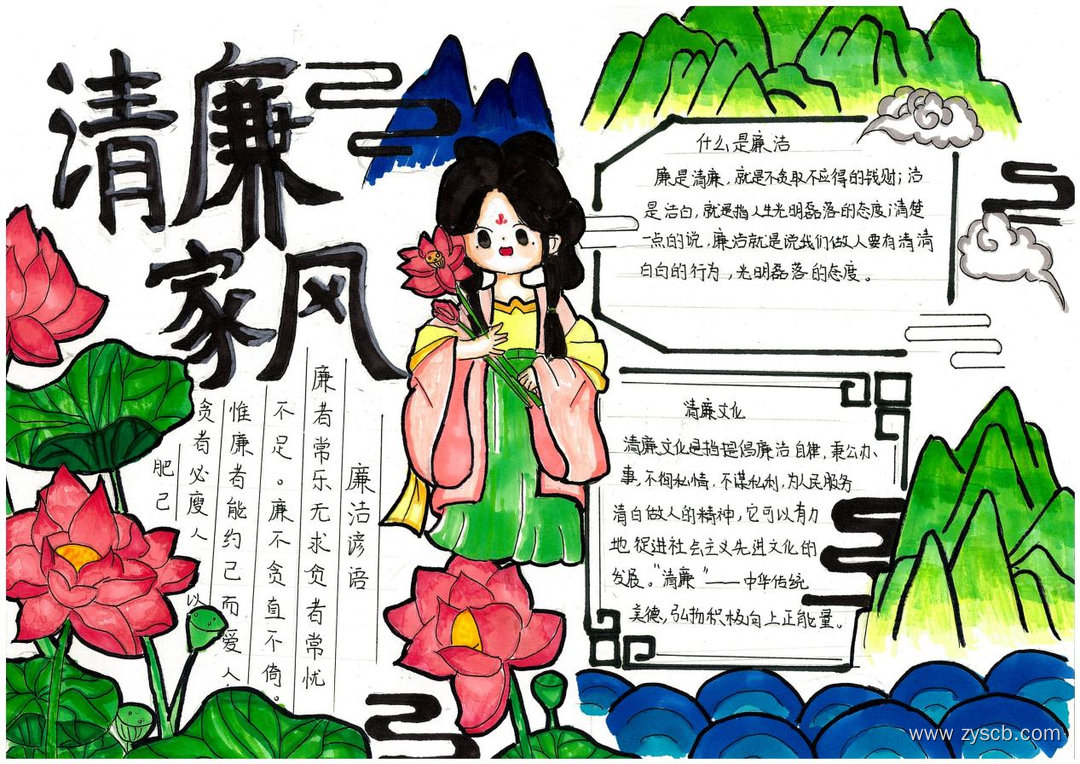 清廉
家风
廉洁谚语
廉者常乐无求贪者常忧
不足。廉不贪直不倚。
惟廉者能约己而爱人
贪者必瘦人以
肥己
什么是廉洁
廉是清廉，就是不贪取不应得的钱财；洁
是洁白，就是指人生光明磊落的态度；清楚
一点的说，廉洁就是说我们做人要有清清
白白的行为，光明磊落的态度。
清廉文化
清廉文化是指提倡廉洁自律，秉公办
事，不徇私情，不谋私利，为人民服务
清白做人的精神，它可以有力
地促进社会主义先进文化的
发展。"清廉"——中华传统
美德，弘扬积极向上正能量。
www.zyscb.com